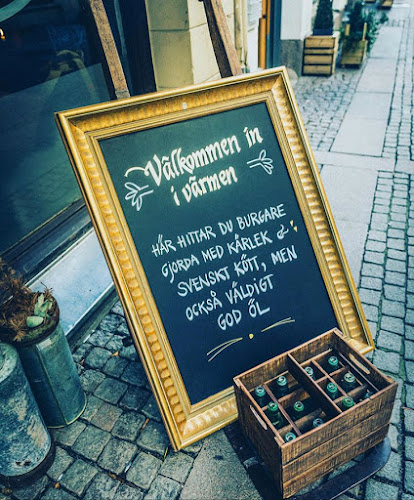 Välkommen in
i värmen
HÄR HITTAR DU BURGARE
GJORDA MED KÄRLEK &
SVENSKT KÖTT, MEN
OCKSÅ VÄLDIGT
GOD ÖL